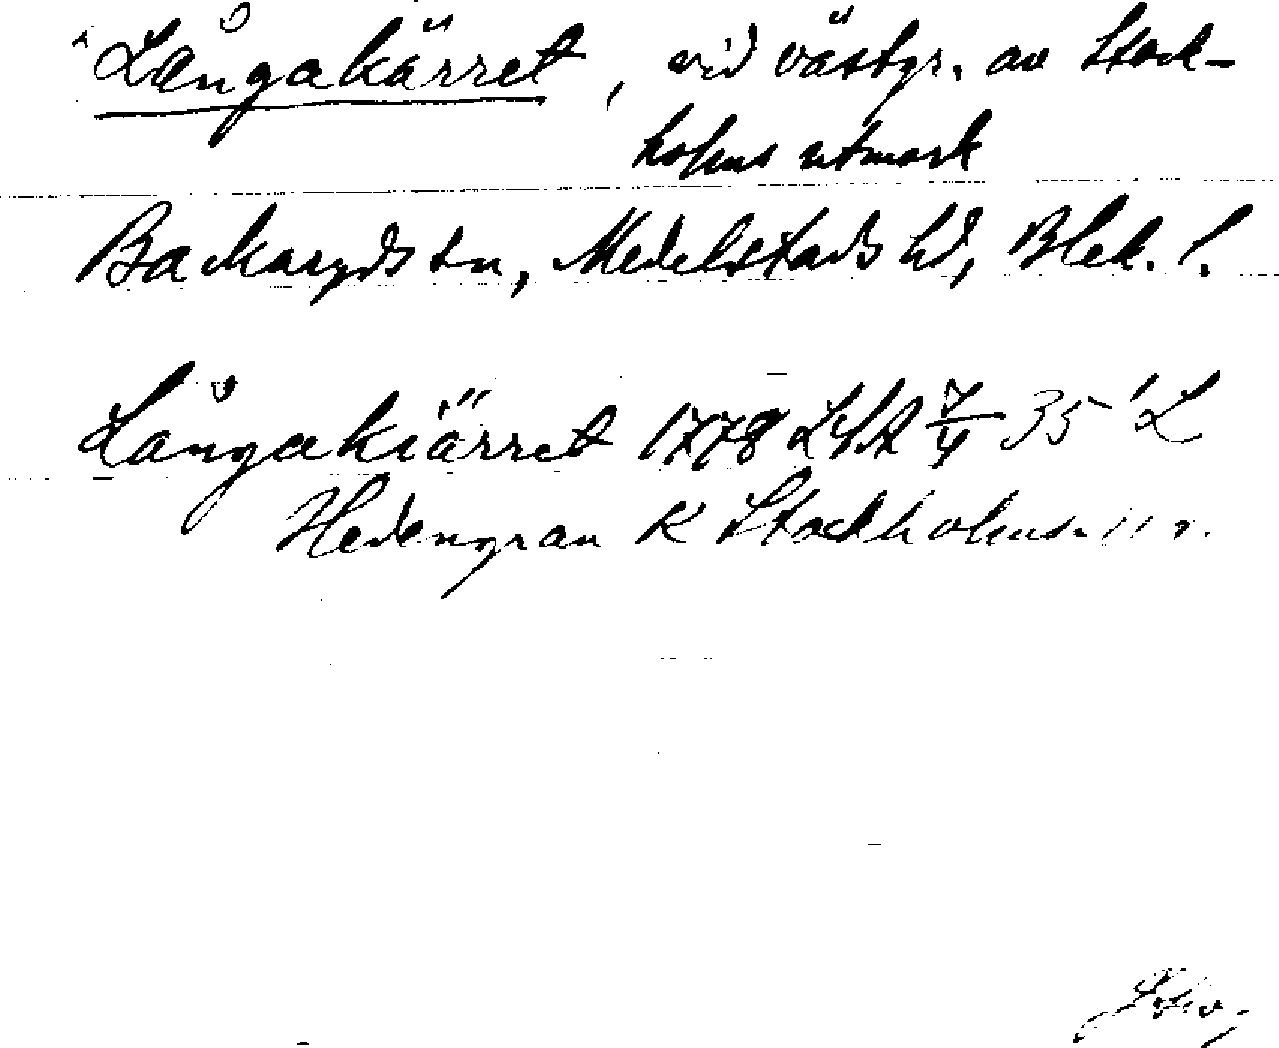 Långakärret, vid västgr. av Stock-
holms utmark
Backaryds sn, Medelstads hd, Blek. l.
Långakiärret 1778 LSA 35 L
Hedengran K Stockholms